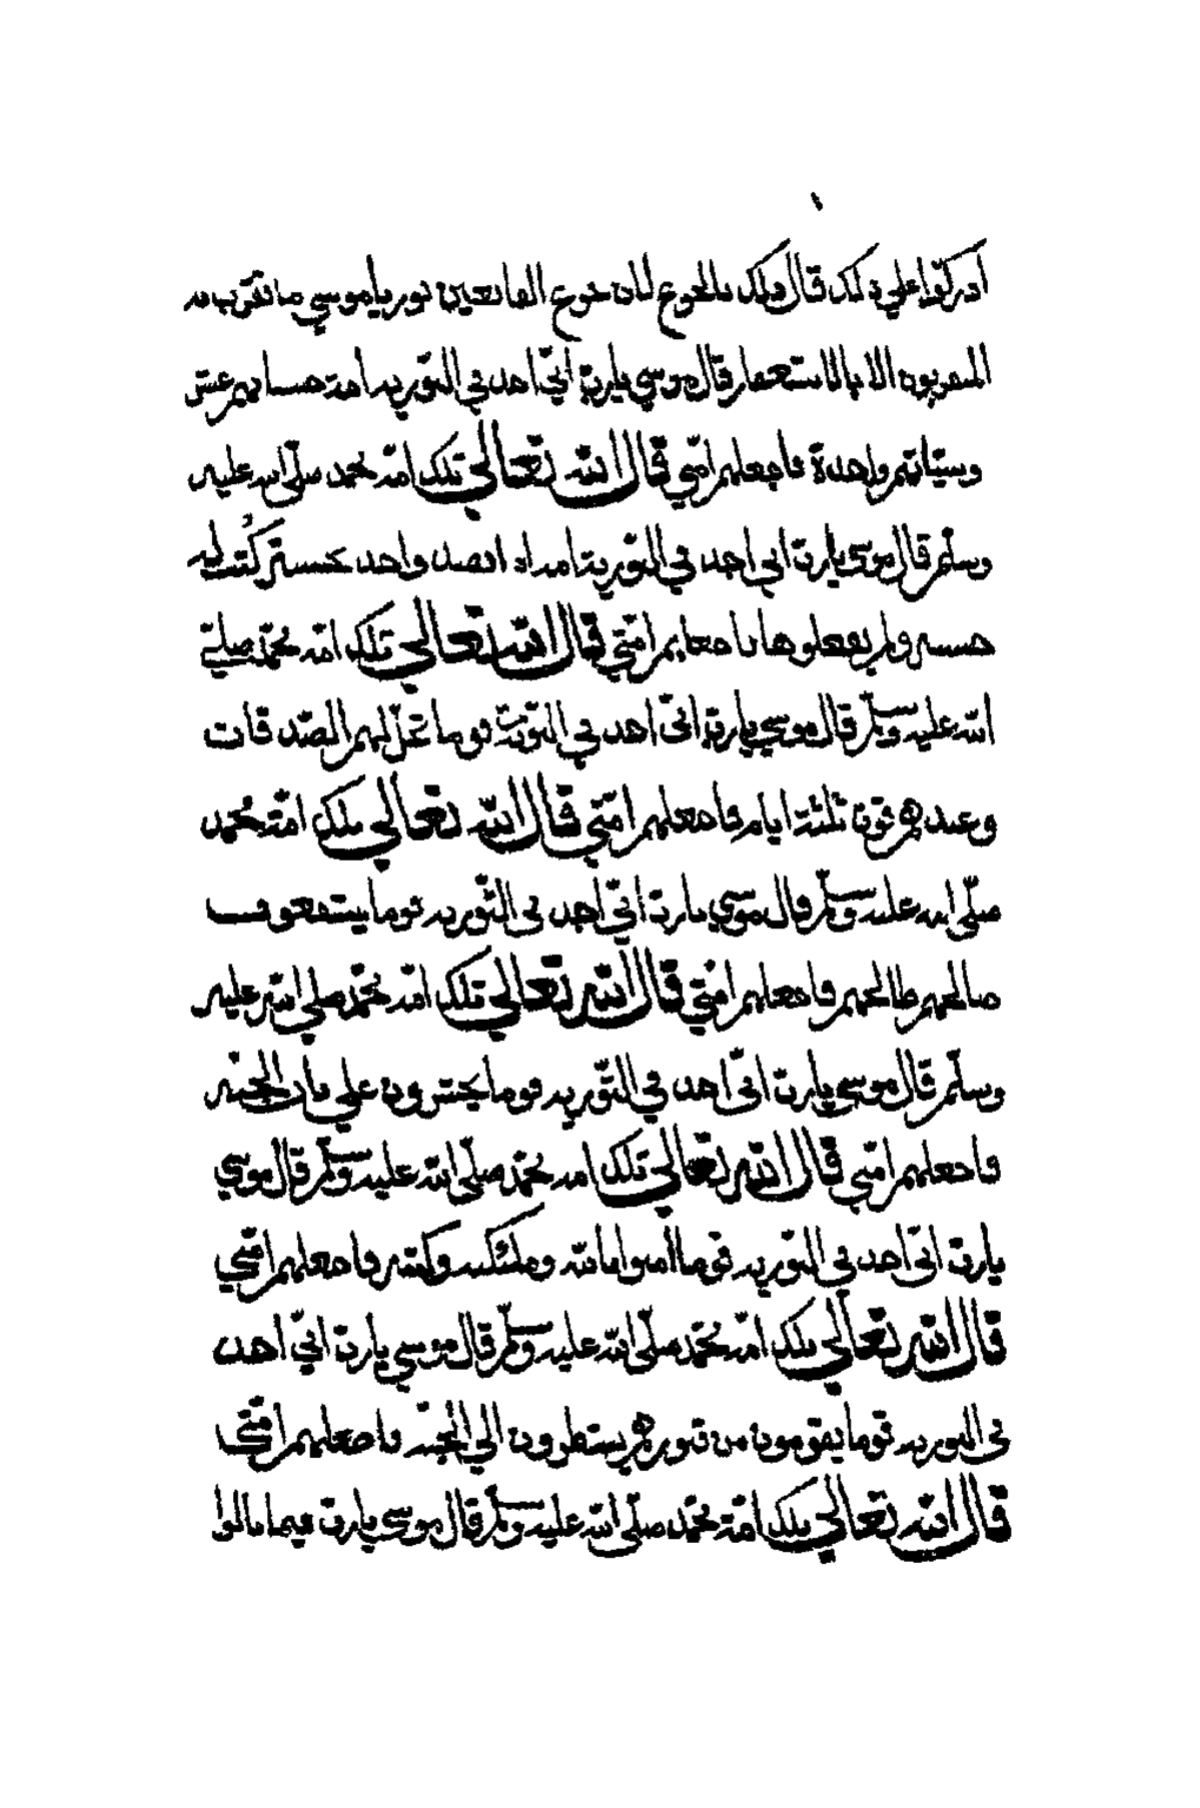 ادركوا علي ذلك قال ذلك بالجوع لان جوع الصائمين نور يا موسي ما تقرب به
المتقربون الا بالاستغفار قال موسي يا رب انّي اجد في التورية امة حسناتهم عشر
وسيّاتهم واحدة فاجعلهم امّتي قال الله تعالي تلك امّة محمد صلّي الله عليه
وسلّم قال موسي يا رب اني اجد في التورية امة اذا قصد واحد حسنة كتبت له
حسنه ولم يفعلوها فاجعلهم امّتي قال الله تعالي تلك امّة محمّد صلّي
الله عليه وسلّم قال موسي يا رب انّي اجد في التورية قوما تحلّ لهم الصّدقات
وعيدهم ثلثة ايام فاجعلهم امّتي قال الله تعالي تلك امّة محمد
صلّي الله عليه وسلّم قال موسي يا رب انّي اجد في التّورية قوما يستشفعون
صالحهم طالحهم فاجعلهم امّتي قال الله تعالي تلك امّة محمّد صلي الله عليه
وسلّم قال موسي يا رب انّي اجد في التّورية قوما يحشرون علي باب الجنّة
فاجعلهم امّتي قال الله تعالي تلك امة محمّد صلّي الله عليه وسلّم قال موسي
يا رب انّي اجد في التّورية قوما امنوا بالله وملئكته وكتبه فاجعلهم امّتي
قال الله تعالي تلك امّة محمّد صلّي الله عليه وسلّم قال موسي يا رب انّي اجد
في التورية قوما يقومون من قبورهم ينتظرون الي الجنّة فاجعلهم امّتي
قال الله تعالي تلك امّة محمّد صلّي الله عليه وسلّم قال موسي يا رب فبما نالوا